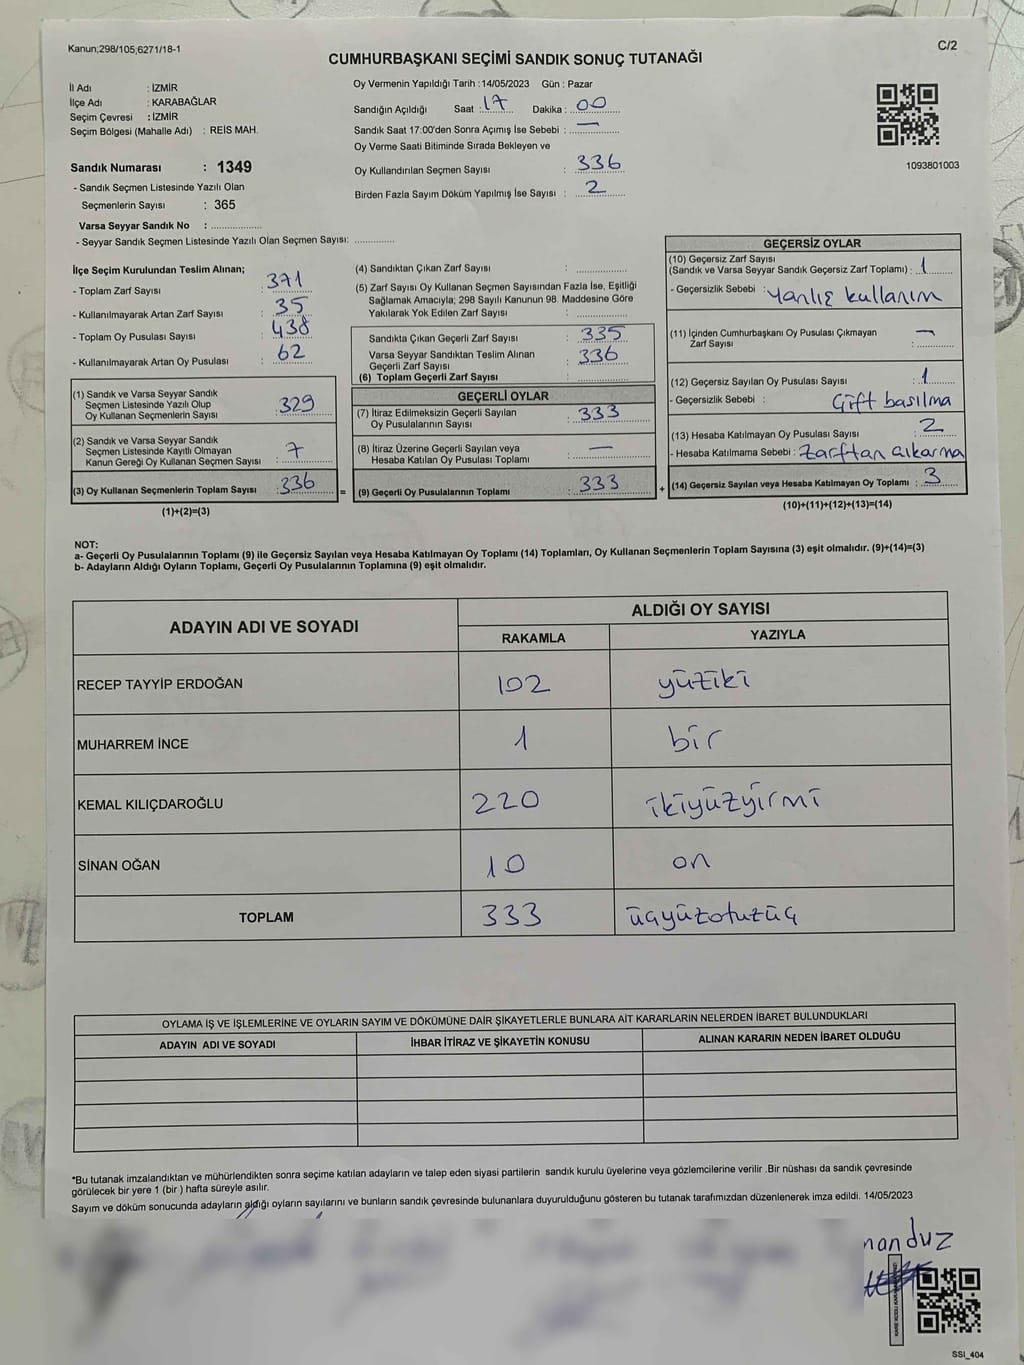 Kanun;298/105;6271/18-1
C/2
CUMHURBAŞKANI SEÇİMİ SANDIK SONUÇ TUTANAĞI
İl Adı : İZMİR
İlçe Adı : KARABAĞLAR
Seçim Çevresi : İZMİR
Seçim Bölgesi (Mahalle Adı) : REİS MAH.
Sandık Numarası : 1349
- Sandık Seçmen Listesinde Yazılı Olan
Seçmenlerin Sayısı : 365
Varsa Seyyar Sandık No : ....................
- Seyyar Sandık Seçmen Listesinde Yazılı Olan Seçmen Sayısı: .............
Oy Vermenin Yapıldığı Tarih :14/05/2023 Gün : Pazar
Sandığın Açıldığı Saat : 17 Dakika : 00
Sandık Saat 17:00'den Sonra Açımış İse Sebebi : —
Oy Verme Saati Bitiminde Sırada Bekleyen ve
Oy Kullandırılan Seçmen Sayısı : 336
Birden Fazla Sayım Döküm Yapılmış İse Sayısı : 2
1093801003
İlçe Seçim Kurulundan Teslim Alınan;
- Toplam Zarf Sayısı : 371
- Kullanılmayarak Artan Zarf Sayısı : 35
- Toplam Oy Pusulası Sayısı : 438
- Kullanılmayarak Artan Oy Pusulası : 62
(1) Sandık ve Varsa Seyyar Sandık
Seçmen Listesinde Yazılı Olup
Oy Kullanan Seçmenlerin Sayısı : 329
(2) Sandık ve Varsa Seyyar Sandık
Seçmen Listesinde Kayıtlı Olmayan
Kanun Gereği Oy Kullanan Seçmen Sayısı : 7
(3) Oy Kullanan Seçmenlerin Toplam Sayısı : 336 =
(1)+(2)=(3)
(4) Sandıktan Çıkan Zarf Sayısı : ................
(5) Zarf Sayısı Oy Kullanan Seçmen Sayısından Fazla İse, Eşitliği
Sağlamak Amacıyla; 298 Sayılı Kanunun 98. Maddesine Göre
Yakılarak Yok Edilen Zarf Sayısı : ................
Sandıkta Çıkan Geçerli Zarf Sayısı : 335
Varsa Seyyar Sandıktan Teslim Alınan
Geçerli Zarf Sayısı : 336
(6) Toplam Geçerli Zarf Sayısı : ................
GEÇERLİ OYLAR
(7) İtiraz Edilmeksizin Geçerli Sayılan
Oy Pusulalarının Sayısı : 333
(8) İtiraz Üzerine Geçerli Sayılan veya
Hesaba Katılan Oy Pusulası Toplamı : —
(9) Geçerli Oy Pusulalarının Toplamı : 333 +
GEÇERSİZ OYLAR
(10) Geçersiz Zarf Sayısı
(Sandık ve Varsa Seyyar Sandık Geçersiz Zarf Toplamı) : 1
- Geçersizlik Sebebi : Yanlış kullanım
(11) İçinden Cumhurbaşkanı Oy Pusulası Çıkmayan
Zarf Sayısı : —
(12) Geçersiz Sayılan Oy Pusulası Sayısı : 1
- Geçersizlik Sebebi : Çift basılma
(13) Hesaba Katılmayan Oy Pusulası Sayısı : 2
- Hesaba Katılmama Sebebi : Zarftan çıkarma
(14) Geçersiz Sayılan veya Hesaba Katılmayan Oy Toplamı : 3
(10)+(11)+(12)+(13)=(14)
NOT:
a- Geçerli Oy Pusulalarının Toplamı (9) ile Geçersiz Sayılan veya Hesaba Katılmayan Oy Toplamı (14) Toplamları, Oy Kullanan Seçmenlerin Toplam Sayısına (3) eşit olmalıdır. (9)+(14)=(3)
b- Adayların Aldığı Oyların Toplamı, Geçerli Oy Pusulalarının Toplamına (9) eşit olmalıdır.
ADAYIN ADI VE SOYADI
ALDIĞI OY SAYISI
RAKAMLA YAZIYLA
RECEP TAYYİP ERDOĞAN 102 yüziki
MUHARREM İNCE 1 bir
KEMAL KILIÇDAROĞLU 220 ikiyüzyirmi
SİNAN OĞAN 10 on
TOPLAM 333 üçyüzotuzüç
OYLAMA İŞ VE İŞLEMLERİNE VE OYLARIN SAYIM VE DÖKÜMÜNE DAİR ŞİKAYETLERLE BUNLARA AİT KARARLARIN NELERDEN İBARET BULUNDUKLARI
ADAYIN ADI VE SOYADI İHBAR İTİRAZ VE ŞİKAYETİN KONUSU ALINAN KARARIN NEDEN İBARET OLDUĞU
*Bu tutanak imzalandıktan ve mühürlendikten sonra seçime katılan adayların ve talep eden siyasi partilerin sandık kurulu üyelerine veya gözlemcilerine verilir .Bir nüshası da sandık çevresinde
görülecek bir yere 1 (bir ) hafta süreyle asılır.
Sayım ve döküm sonucunda adayların aldığı oyların sayılarını ve bunların sandık çevresinde bulunanlara duyurulduğunu gösteren bu tutanak tarafımızdan düzenlenerek imza edildi. 14/05/2023
nanduz
SSI_404